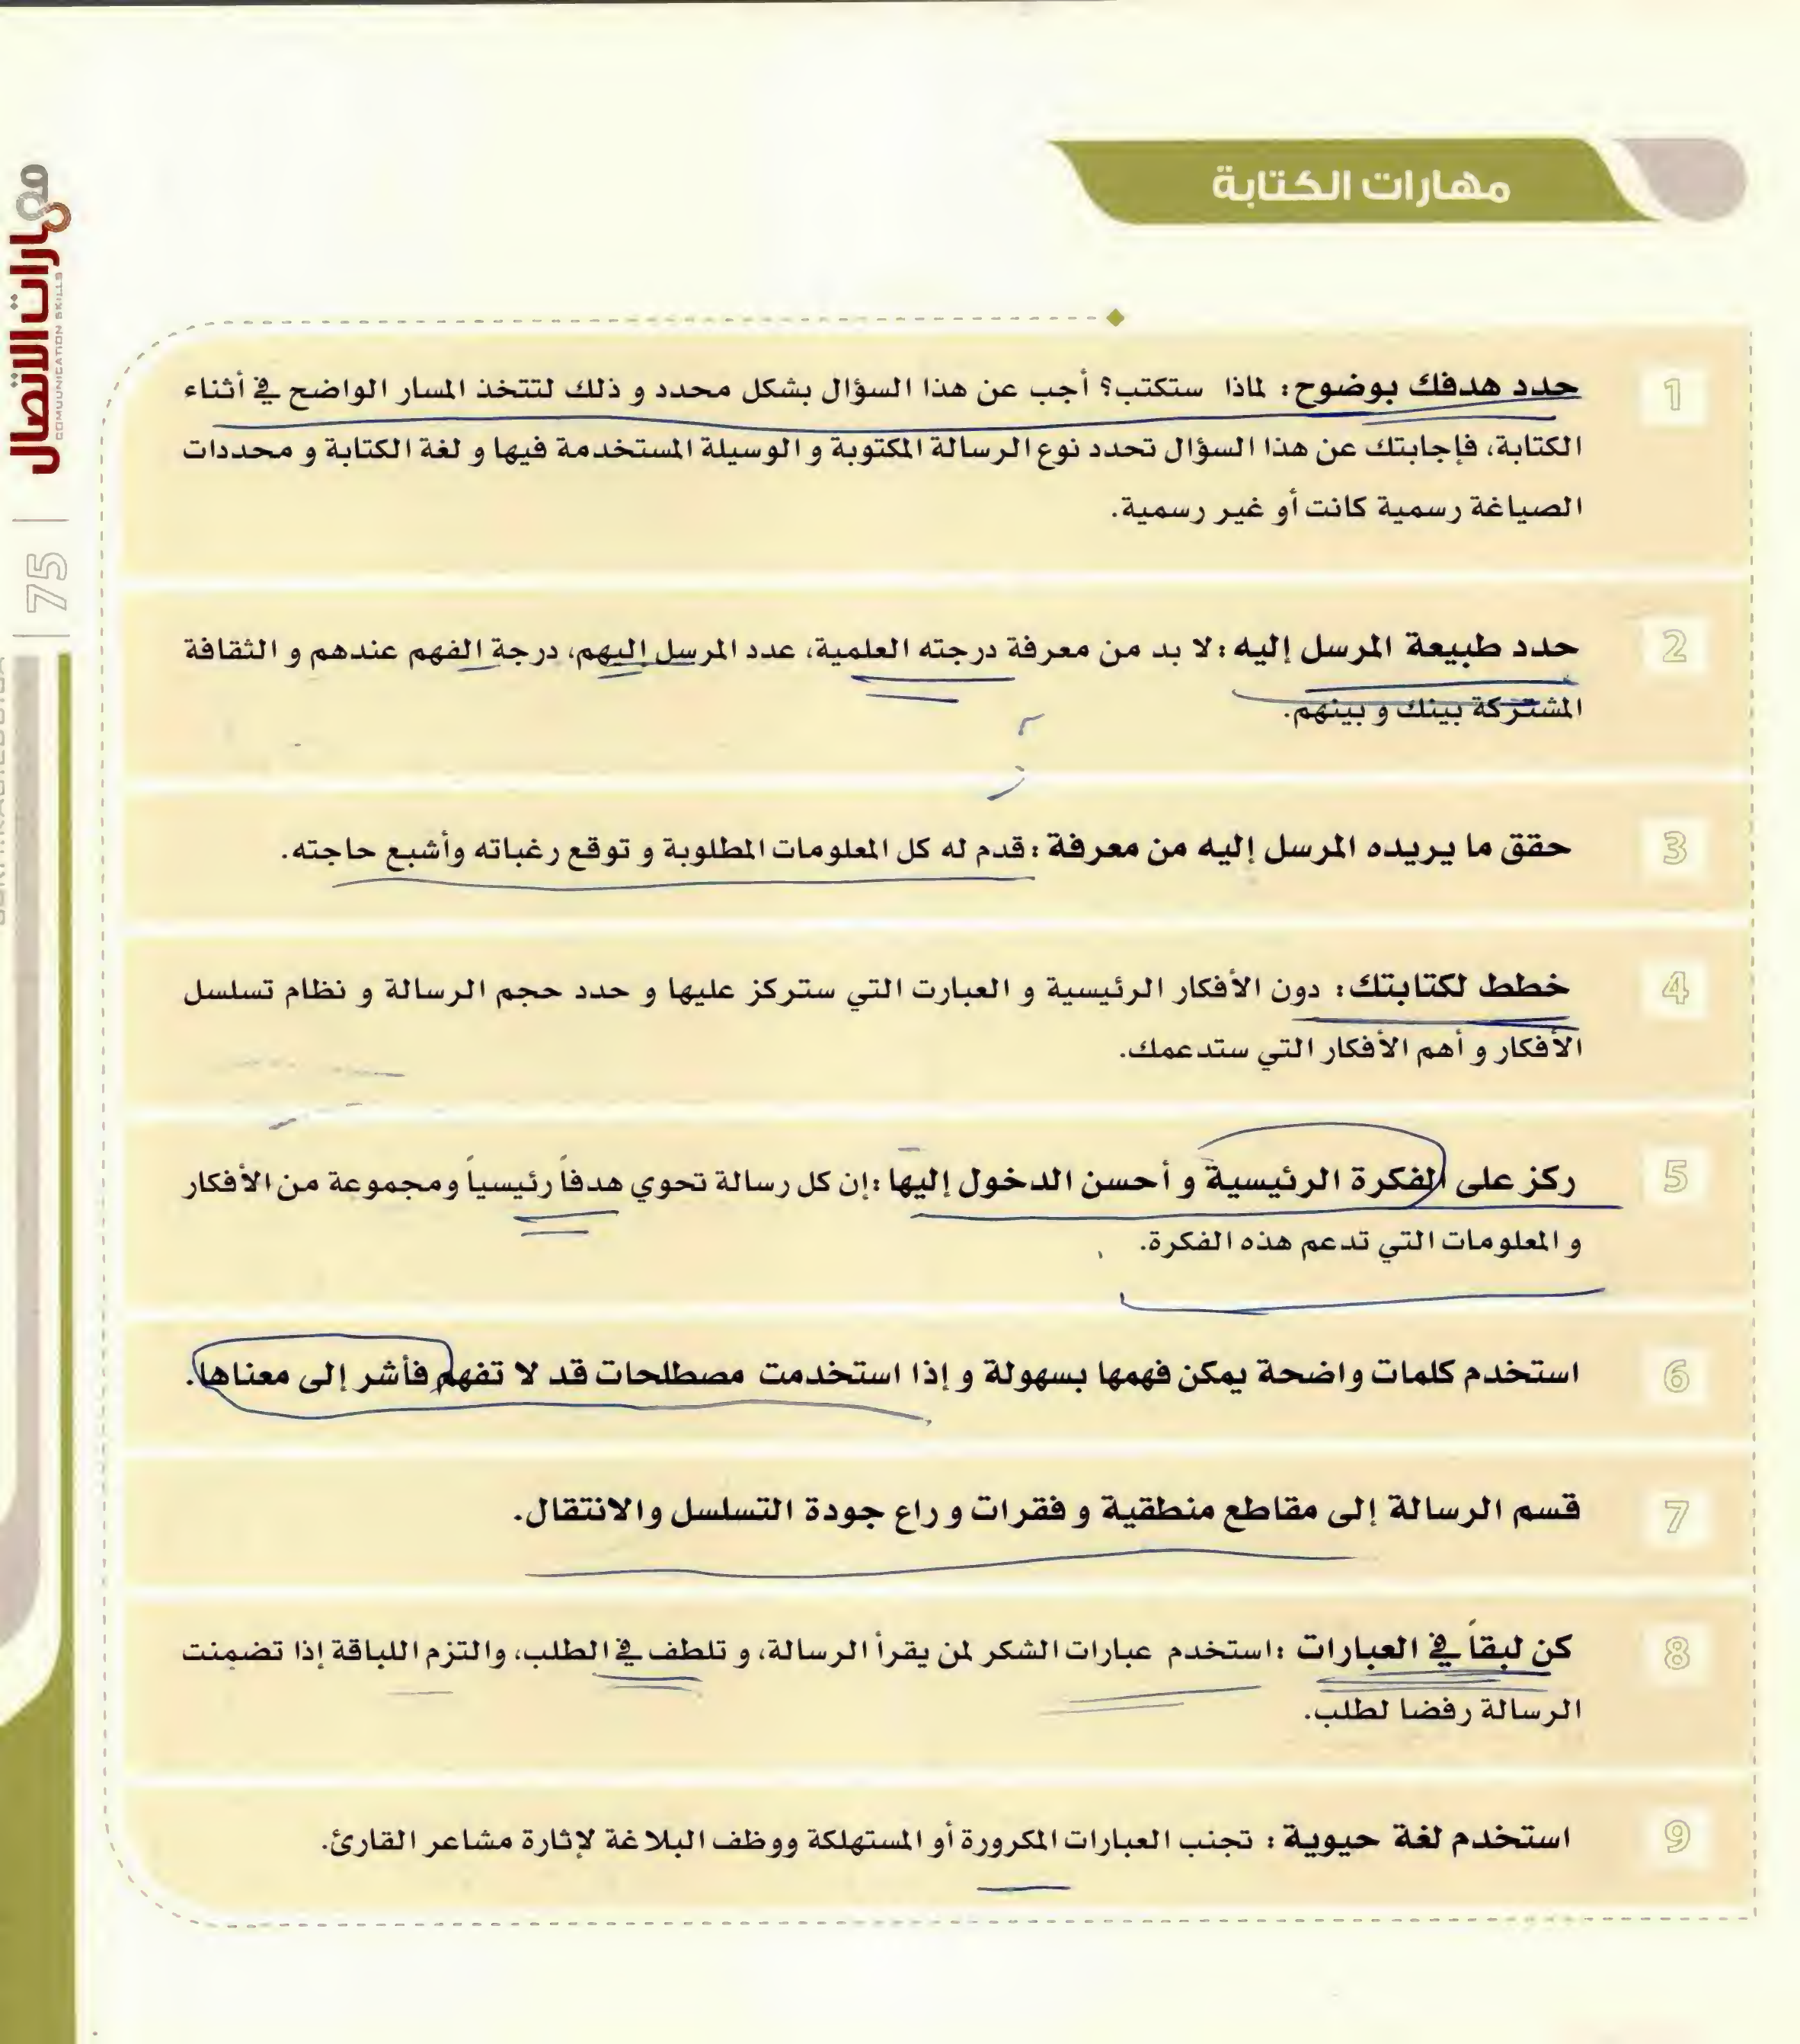 مهارات الكتابة
1
حدد هدفك بوضوح: لماذا ستكتب؟ أجب عن هذا السؤال بشكل محدد و ذلك لتتخذ المسار الواضح في أثناء
الكتابة، فإجابتك عن هذا السؤال تحدد نوع الرسالة المكتوبة و الوسيلة المستخدمة فيها و لغة الكتابة و محددات
الصياغة رسمية كانت أو غير رسمية.
2
حدد طبيعة المرسل إليه: لا بد من معرفة درجته العلمية، عدد المرسل إليهم، درجة الفهم عندهم و الثقافة
المشتركة بينك و بينهم.
3
حقق ما يريده المرسل إليه من معرفة: قدم له كل المعلومات المطلوبة و توقع رغباته وأشبع حاجته.
4
خطط لكتابتك: دون الأفكار الرئيسية و العبارت التي ستركز عليها و حدد حجم الرسالة و نظام تسلسل
الأفكار و أهم الأفكار التي ستدعمك.
5
ركز على الفكرة الرئيسية و أحسن الدخول إليها: إن كل رسالة تحوي هدفاً رئيسياً ومجموعة من الأفكار
و المعلومات التي تدعم هذه الفكرة.
6
استخدم كلمات واضحة يمكن فهمها بسهولة و إذا استخدمت مصطلحات قد لا تفهم فأشر إلى معناها.
7
قسم الرسالة إلى مقاطع منطقية و فقرات و راع جودة التسلسل والانتقال.
8
كن لبقاً في العبارات: استخدم عبارات الشكر لمن يقرأ الرسالة، و تلطف في الطلب، والتزم اللباقة إذا تضمنت
الرسالة رفضا لطلب.
9
استخدم لغة حيوية: تجنب العبارات المكرورة أو المستهلكة ووظف البلاغة لإثارة مشاعر القارئ.
مهارات الاتصال
COMUUNICATION SKILLS
75